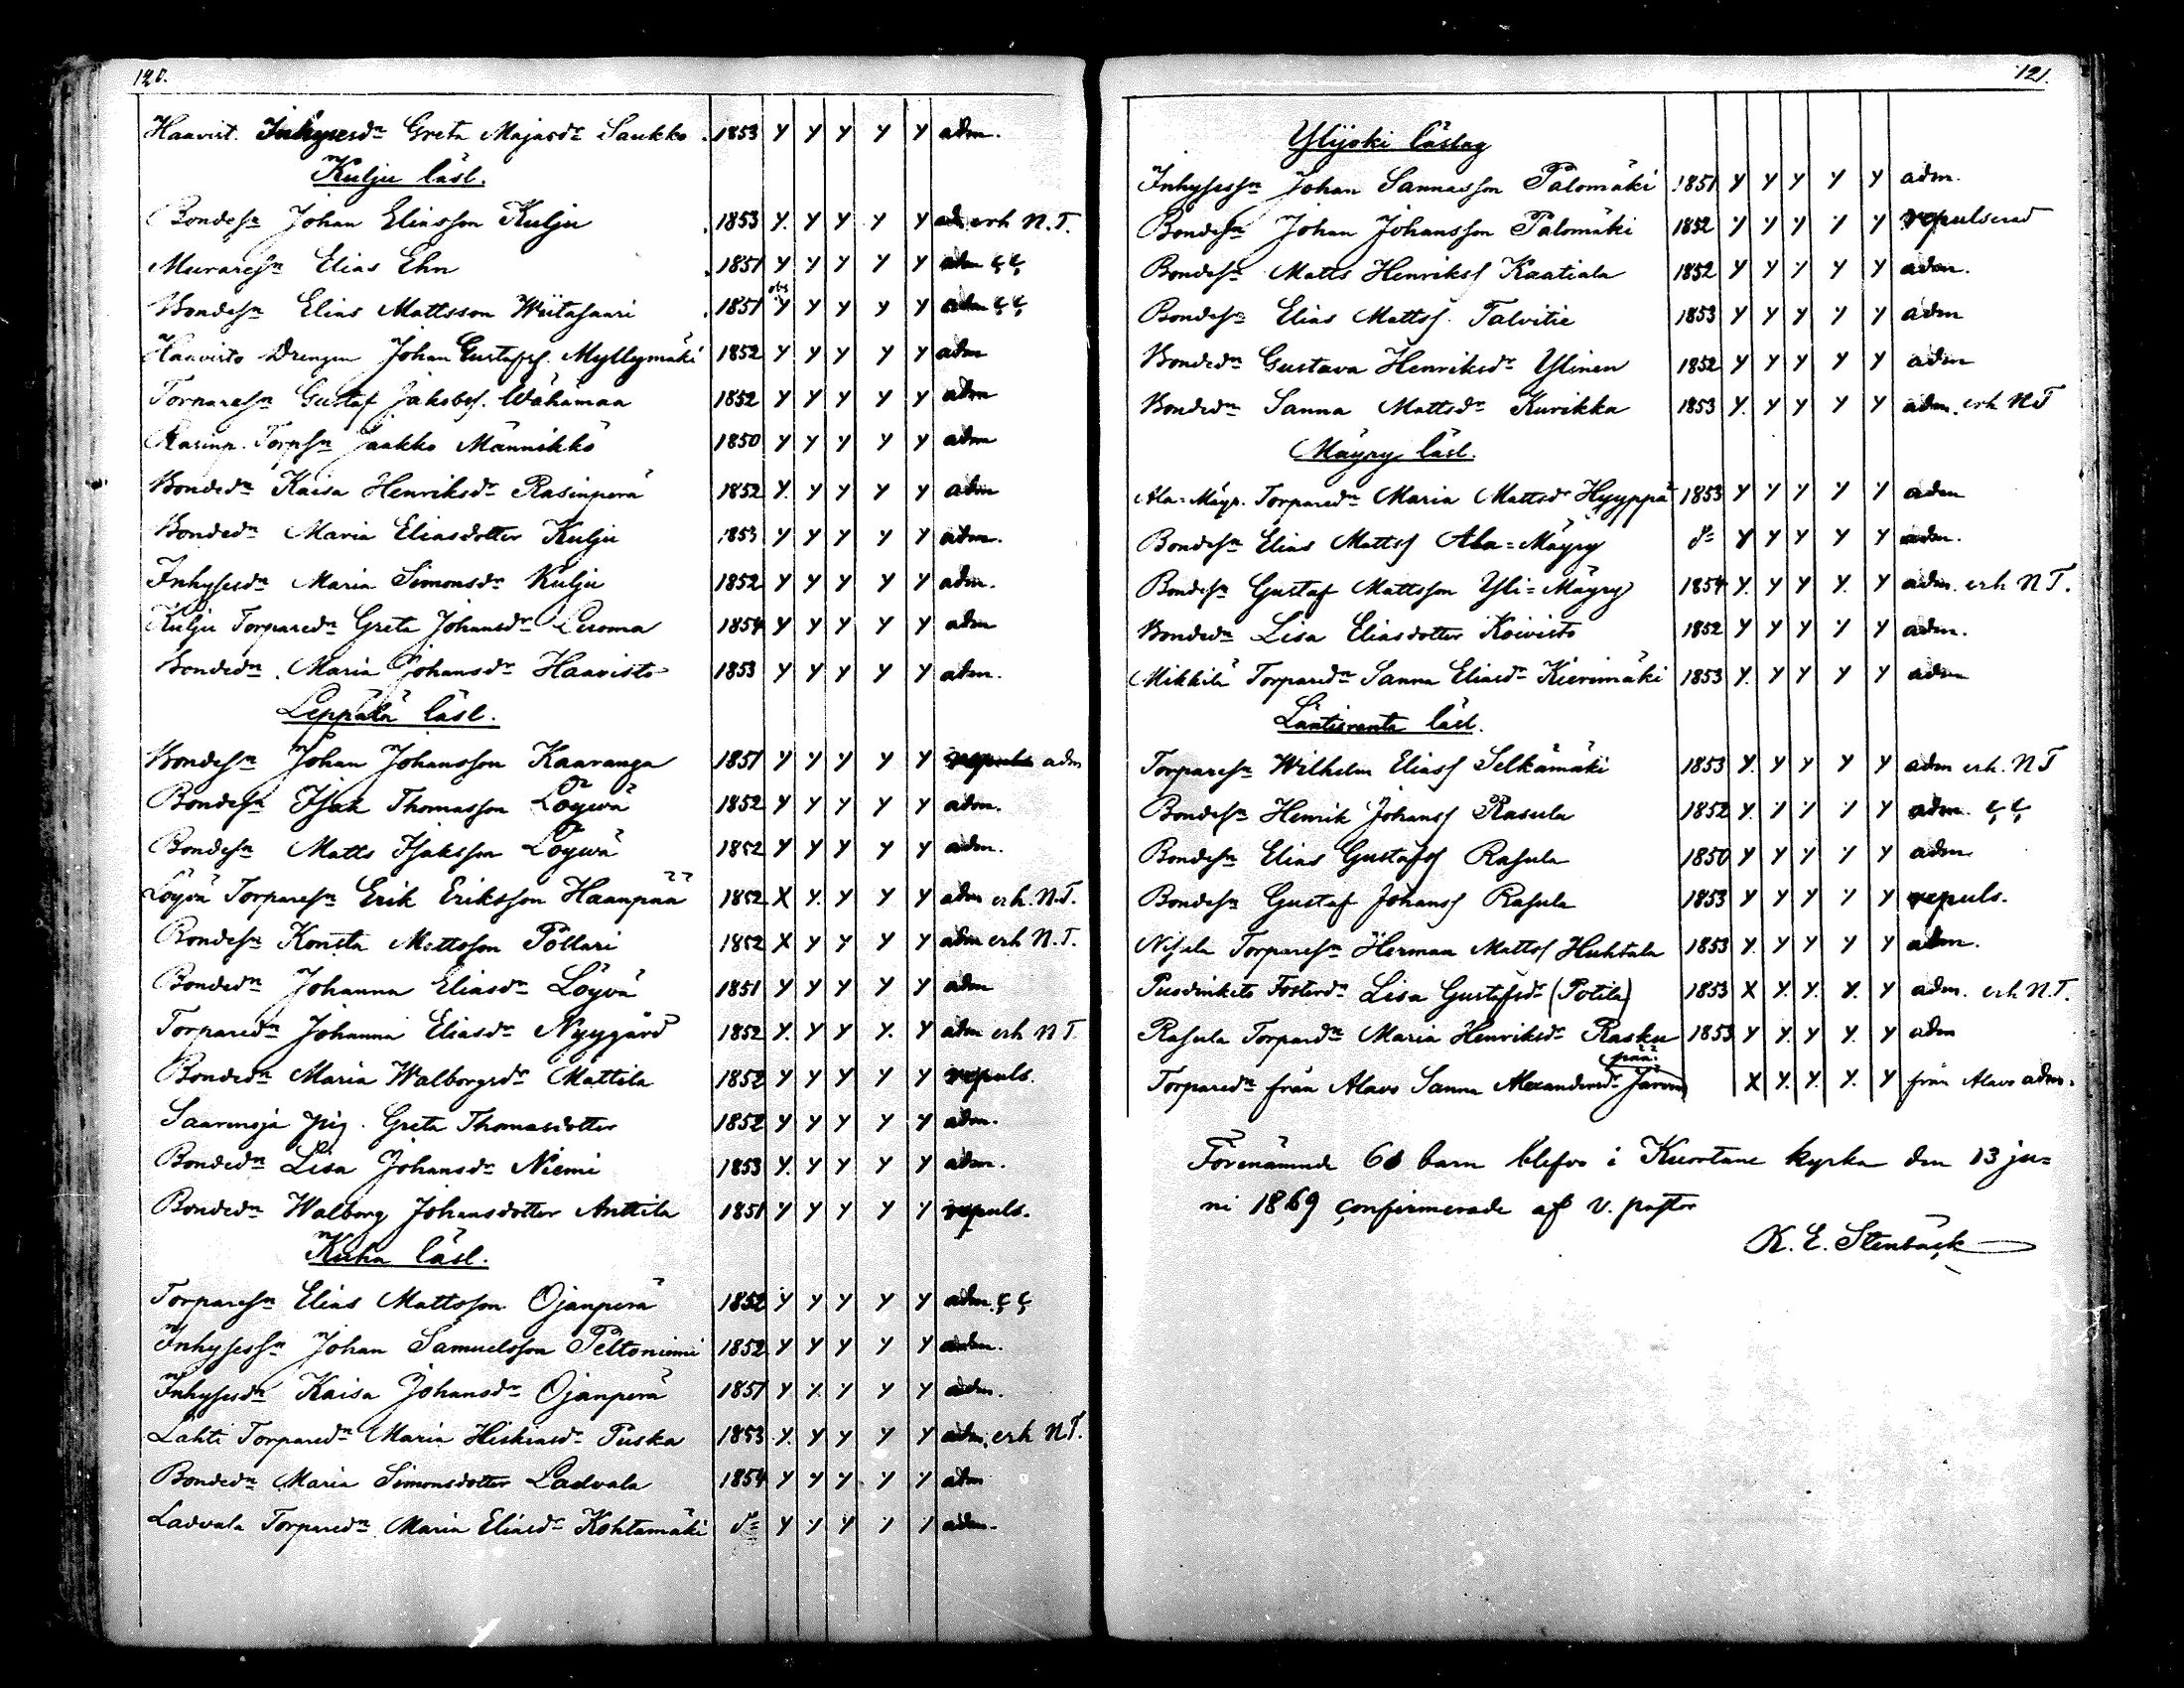 120.
Haavist. Inhysesdn Greta Majasdr Saukko 1853 y y y y y adm.
Kulju läsl.
Bondesn Johan Eliasson Kulju 1853 y. y y y y ad. erh N.T.
Muraresn Elias Ehn 1851 y y y y y adm
Bondesn Elias Mattsson Wiitasaari 1851 obs y y y y y adm
Haavisto Drengen Johan Gustafss. Myllymäki 1852 y y y y y adm
Torparesn Gustaf Jakobss. Wähämaa 1852 y y y y y adm
Rasinp. Torpsn Jaakko Männikkö 1850 y y y y y adm
Bondedn Kaisa Henriksdr Rasinperä 1852 y. y y y y adm
Bondedn Maria Eliasdotter Kulju 1853 y y y y y adm.
Inhysesdn Maria Simonsdr Kulju 1852 y y y y y adm.
Kulju Torparedn Greta Johansdr Luoma 1854 y y y y y adm
Bondedn Maria Johansdr Haavisto 1853 y y y y y adm.
Leppälä läsl.
Bondesn Johan Johansson Kaaranga 1851 y y y y y adm
Bondesn Isak Thomasson Löyvä 1852 y y y y y adm.
Bondesn Matts Isaksson Löyvä 1852 y y y y y adm.
Löyvä Torparesn Erik Eriksson Haanpää 1852 X y. y y y adm erh. N.T.
Bondesn Konsta Mattsson Pöllari 1852 X y y y y adm erh N.T.
Bondedn Johanna Eliasdr Löyvä 1851 y y y y y adm
Torparedn Johanna Eliasdr Nyygård 1852 y. y y y. y adm erh N T
Bondedn Maria Walborgsdr Mattila 1852 y y y y y repuls.
Saarensja pig. Greta Thomasdotter 1852 y y y y y adm.
Bondedn Lisa Johansdr Niemi 1853 y. y y y y adm.
Bondedn Walborg Johansdotter Anttila 1851 y y y y y repuls.
Kuha läsl.
Torparesn Elias Mattsson Ojanperä 1852 y y y y y adm.
Inhysessn Johan Samuelsson Peltoniemi 1852 y y y y y adm.
Inhysesdn Kaisa Johansdr Ojanperä 1851 y y y y y adm.
Lahti Torparedn Maria Hiskiasdr Puska 1853 y. y y y y adm. erh N.T.
Bondedn Maria Simonsdotter Ladvala 1854 y y y y y adm
Ladvala Torparedn Maria Eliasdr Kohtamäki do y y y y y adm.
121.
Ylijoki läslag
Inhysessn Johan Sannasson Palomäki 1851 y y y y y adm.
Bondesn Johan Johansson Palomäki 1852 y y y y y repulserad
Bondesn Matts Henrikss Kaatiala 1852 y y y y y adm.
Bondesn Elias Mattss. Talvitie 1853 y y y y y adm
Bondedn Gustava Henriksdr Ylinen 1852 y y y y y adm
Bondedn Sanna Mattsdr Kurikka 1853 y. y y y y adm. erh N T
Mäyry läsl.
Ala=Mäyr. Torparedn Maria Mattsdr Hyyppä 1853 y y y y y adm
Bondesn Elias Mattss Ala=Mäyry do y y y y y adm.
Bondesn Gustaf Mattsson Yli=Mäyry 1854 y. y y y. y adm. erh N T.
Bondedn Lisa Eliasdotter Koivisto 1852 y y y y y adm.
Mikkilä Torparedn Sanna Eliasdr Kierimäki 1853 y. y y y y adm
Läntisranta läsl.
Torparesn Wilhelm Eliass Selkämäki 1853 y. y y y y adm erh. N T
Bondesn Henrik Johanss Rasula 1852 y. y y y y adm.
Bondesn Elias Gustafss Rasula 1850 y y y y y adm
Bondesn Gustaf Johanss Rasula 1853 y y y y y repuls.
Nisula Torparesn Herman Mattss Huhtala 1853 y. y y y y adm.
Fosterdn Lisa Gustafsdr (Potila) 1853 X y. y. y. y adm. erh N.T.
Rasula Torpardn Maria Henriksdr Rasku 1853 y y. y y. y adm
Torparedn från Alavo Sanna Alexandersdr Järvenpää X y. y. y. y från Alavo adm.
Förenämnde 60 barn blefvo i Kuortane kyrka den 13 ju=
ni 1869 confirmerade af v. pastor
K. E. Stenbäck